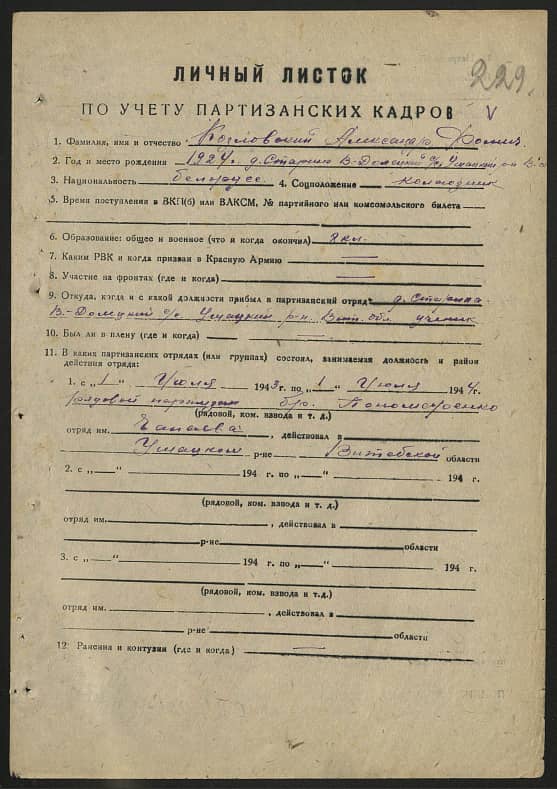 229.
ЛИЧНЫЙ ЛИСТОК
ПО УЧЕТУ ПАРТИЗАНСКИХ КАДРОВ V
1. Фамилия, имя и отчество Козловский Александр Фомич
2. Год и место рождения 1924г. д. Старина В-Долецкий с/с Ушацкий р-н В
3. Национальность белорусс. 4. Соцположение колхозник
5. Время поступления в ВКП(б) или ВЛКСМ, № партийного или комсомольского билета —
6. Образование: общее и военное (что и когда окончил) 8 кл.
7. Каким РВК и когда призван в Красную Армию —
8. Участие на фронтах (где и когда) —
9. Откуда, когда и с какой должности прибыл в партизанский отряд д. Старина
В.-Долецкий с/с Ушацкий р-н Вит. обл. ученик
10. Был ли в плену (где и когда) —
11. В каких партизанских отрядах (или группах) состоял, занимаемая должность и район
действия отряда:
1. с „1" Июля 1943г. по „1" Июля 1944г.
рядовой партизан бр. Пономаренко
(рядовой, ком. взвода и т. д.)
отряд им. Чапаева, действовал в
Ушацком р-не Витебской области
2. с „—" 194 г. по „—" 194 г.
(рядовой, ком. взвода и т. д.)
отряд им. , действовал в
р-не области
3. с „—" 194 г. по „—" 194 г.
(рядовой, ком. взвода и т.д.)
отряд им. , действовал в
р-не области
12. Ранения и контузии (где и когда) —